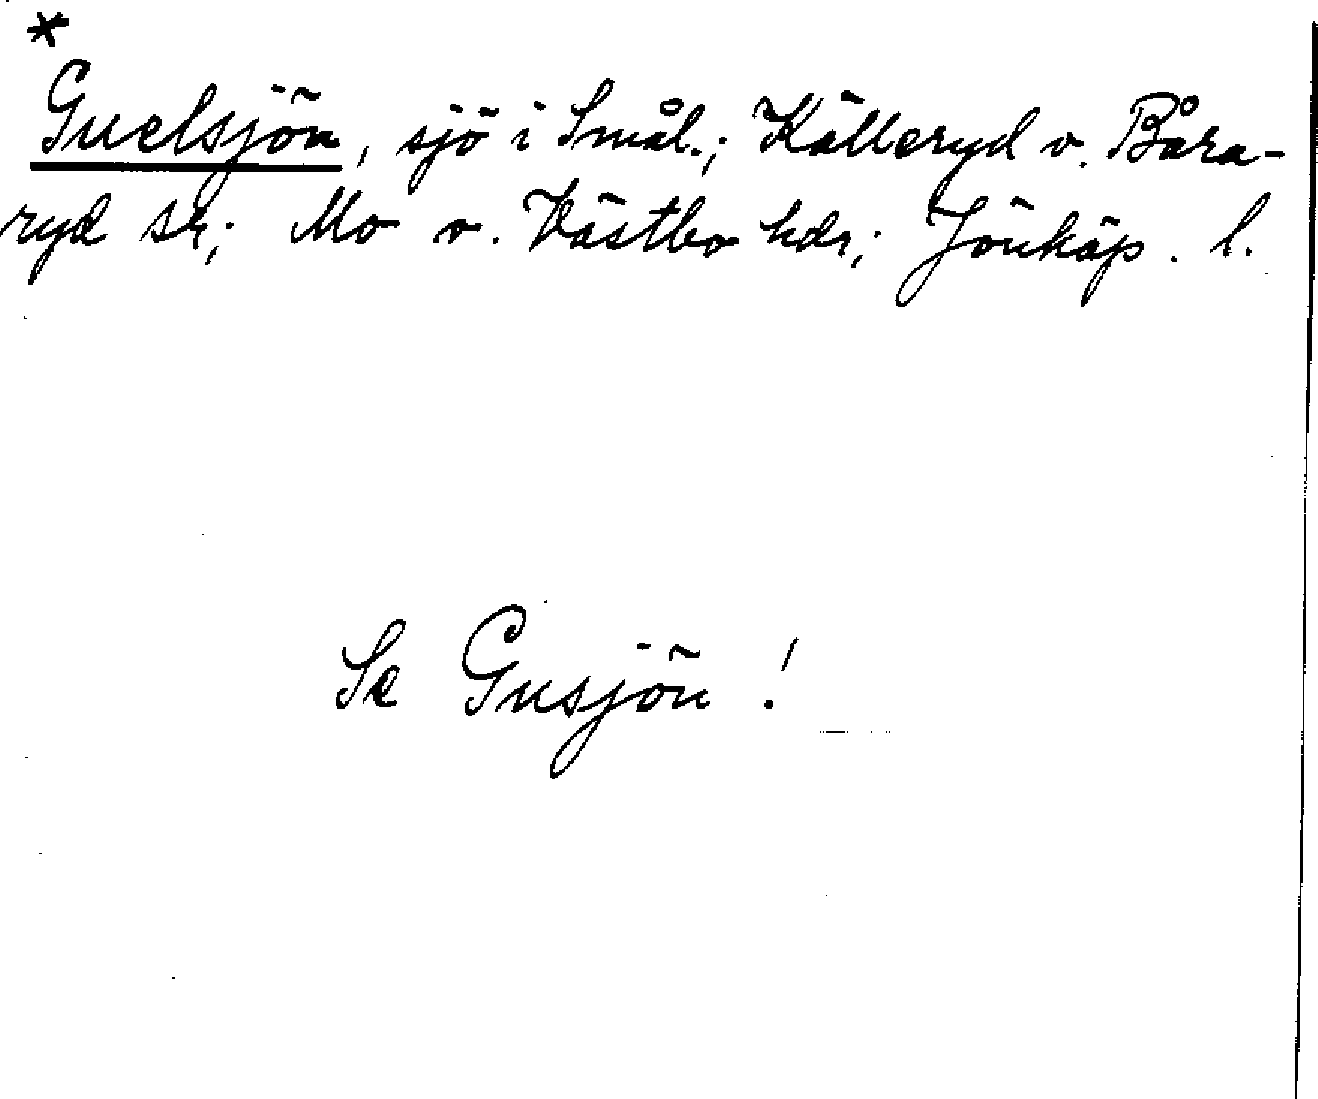 *
Guelsjön, sjö i Smål.; Källeryd o. Båra-
ryd sk; Mo o. Västbo hdr; Jönköp. l.
Se Gusjön!